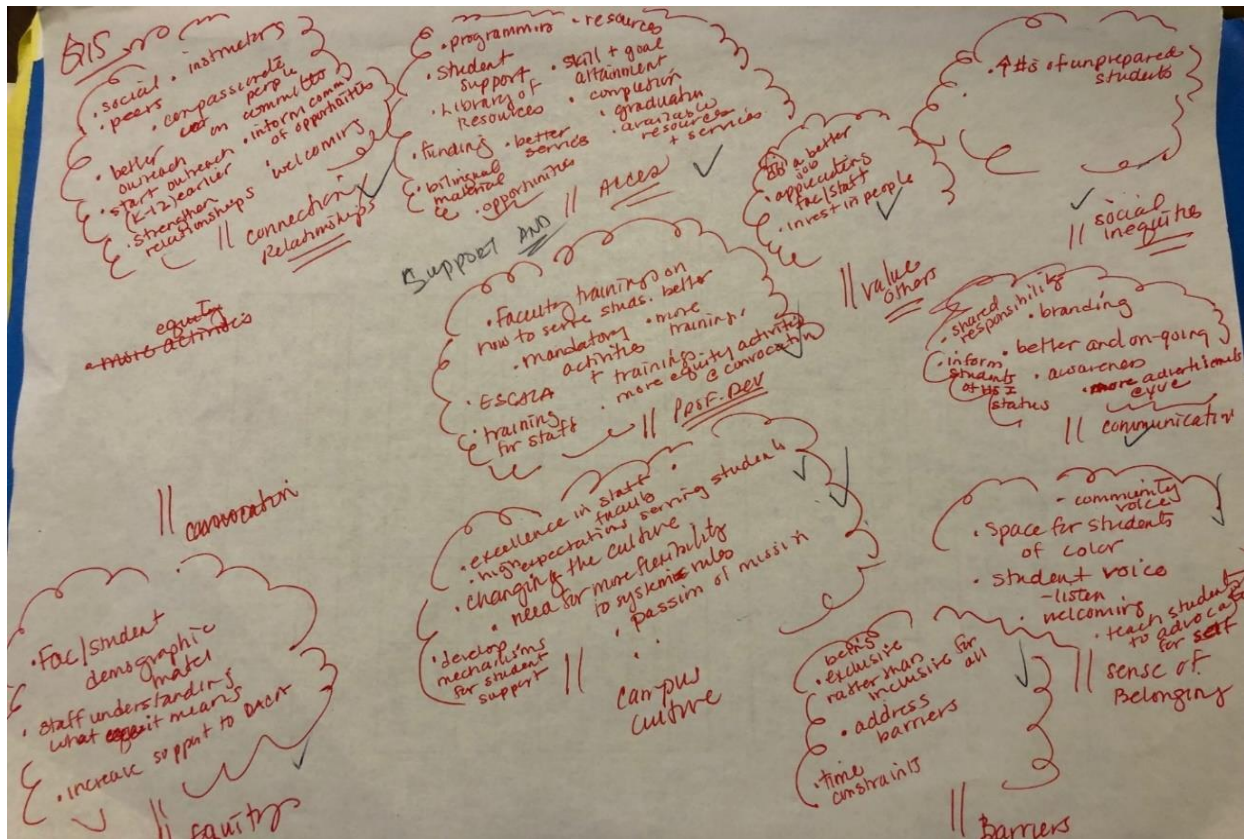 • social • instructors
• peers
• compassionate people
on committee
• better outreach
• inform comm. of opportunities
• start outreach (K-12) earlier
welcoming
• strengthen relationships
|| connection/
Relationships
• programming
• resources
• student support
• skill + goal attainment
• Library of Resources
• completion
• graduation
• funding
• better services
• available resources + services
• bilingual material
• opportunities
Support AND
|| Access
a better job
appreciating fac/staff
• invest in people
|| value others
• ↑ #s • of unprepared
students
|| social
inequities
equity
• more activities
|| convocation
• Faculty training on
how to serve studs. better
• mandatory activities
• more training,
+ trainings
• ESCALA
• more equity activities
@ convocation
• training for staff
|| Prof. Dev
• shared responsibility
• branding
• better and on-going
• inform students of HSI status
• awareness
• more advertisements
@ yvc
|| communication
• excellence in staff
faculty
• high expectations serving students
• changing the culture
• need for more flexibility
to systemic rules
• passion of mission
• develop mechanisms
for student support
|| campus
culture
- community voice
• Space for students
of color
• student voice
- listen
• welcoming
• teach students
to advocate
for self
|| sense of
Belonging
• Fac/student
demographic
match
• staff understanding
what it means
• increase support to DACA
|| Equity
being
• exclusive
rather than
inclusive for
all
• address
barriers
• time
constraints
|| Barriers